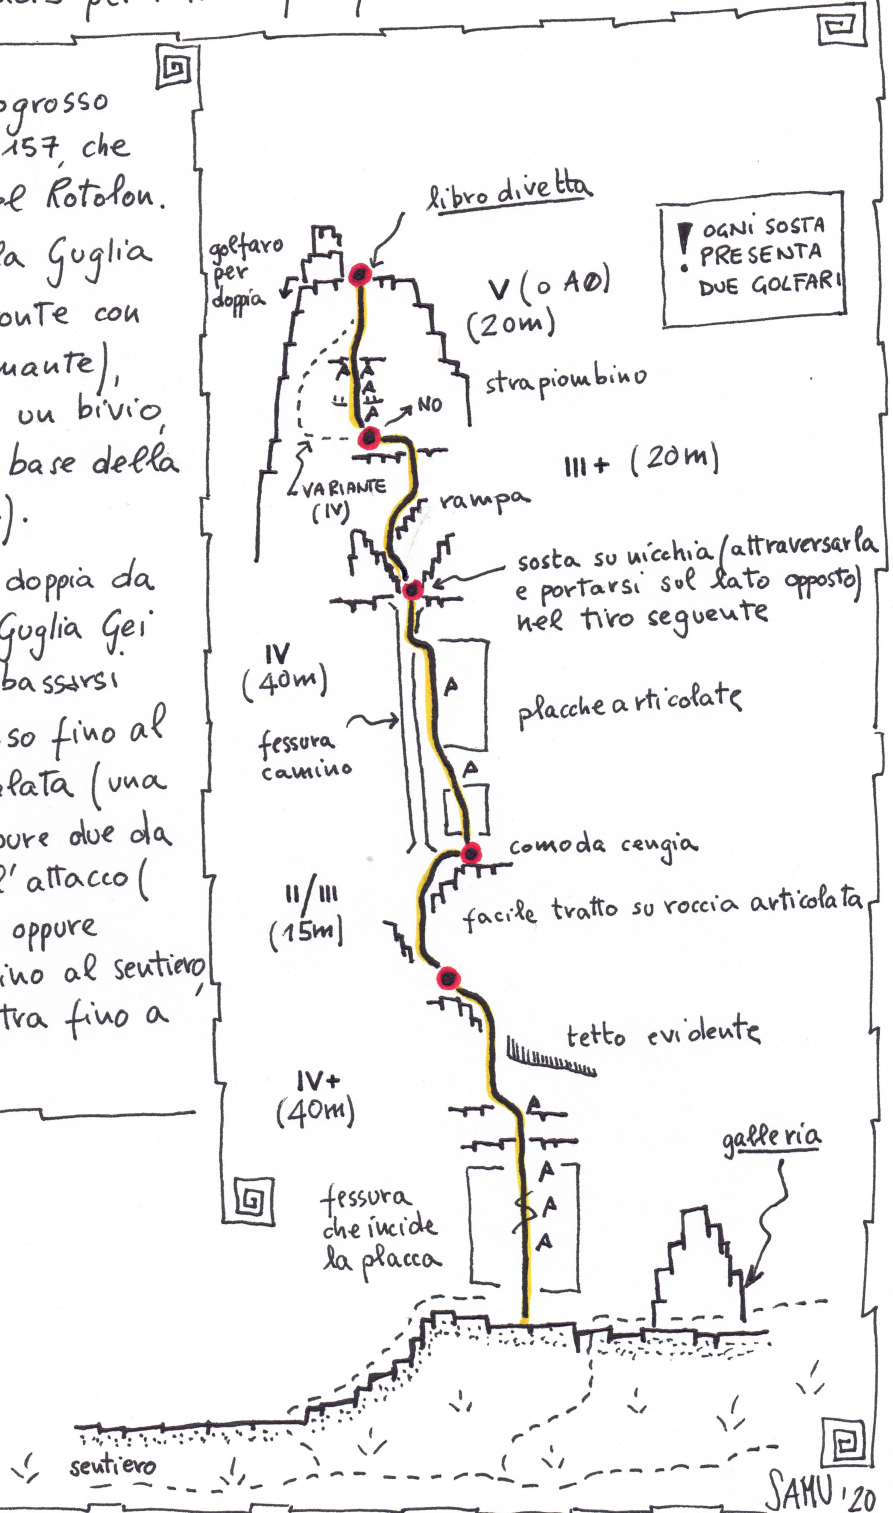 ogrosso
157, che
Rotolon.
la Guglia
onte con
un bivio,
base della
doppia da
Guglia Gei
bassarsi
so fino al
lata (una
pure due da
l'attacco (
oppure
ino al sentiero,
tra fino a
libro di vetta
golfaro
per
doppia
! OGNI SOSTA
PRESENTA
DUE GOLFARI
V (o A0)
(20m)
A
A
A
A
strapiombino
NO
III+ (20m)
VARIANTE
(IV)
rampa
sosta su nicchia (attraversarla
e portarsi sul lato opposto)
nel tiro seguente
IV
(40m)
A
placche articolate
fessura
camino
A
comoda cengia
II/III
(15m)
facile tratto su roccia articolata
tetto evidente
IV+
(40m)
A
galleria
A
A
A
fessura
che incide
la placca
sentiero
SAMU '20